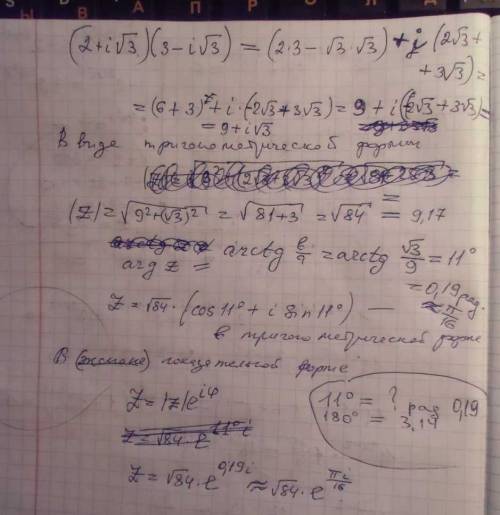 Ы В А П Р О Л Д
(2+i√3)(3-i√3) = (2·3 - √3·√3) + i(2√3+
+3√3)=
= (6+3) + i·(-2√3+3√3) = 9 + i(-2√3+3√3)=
= 9+i√3
В виде тригонометрической формы
|z| = √(9²+(√3)²) = √(81+3) = √84 = 9,17
arg z = arctg b/a = arctg √3/9 = 11°
= 0,19 рад.
≈ π/16
z = √84·(cos 11° + i sin 11°) —
в тригонометрической форме
В (экспоне) показательной форме
z = |z|e^{iφ}
11° = ? рад 0,19
180° = 3,14
z = √84·e^{11°i}
z = √84·e^{0,19i} ≈ √84·e^{πi/16}